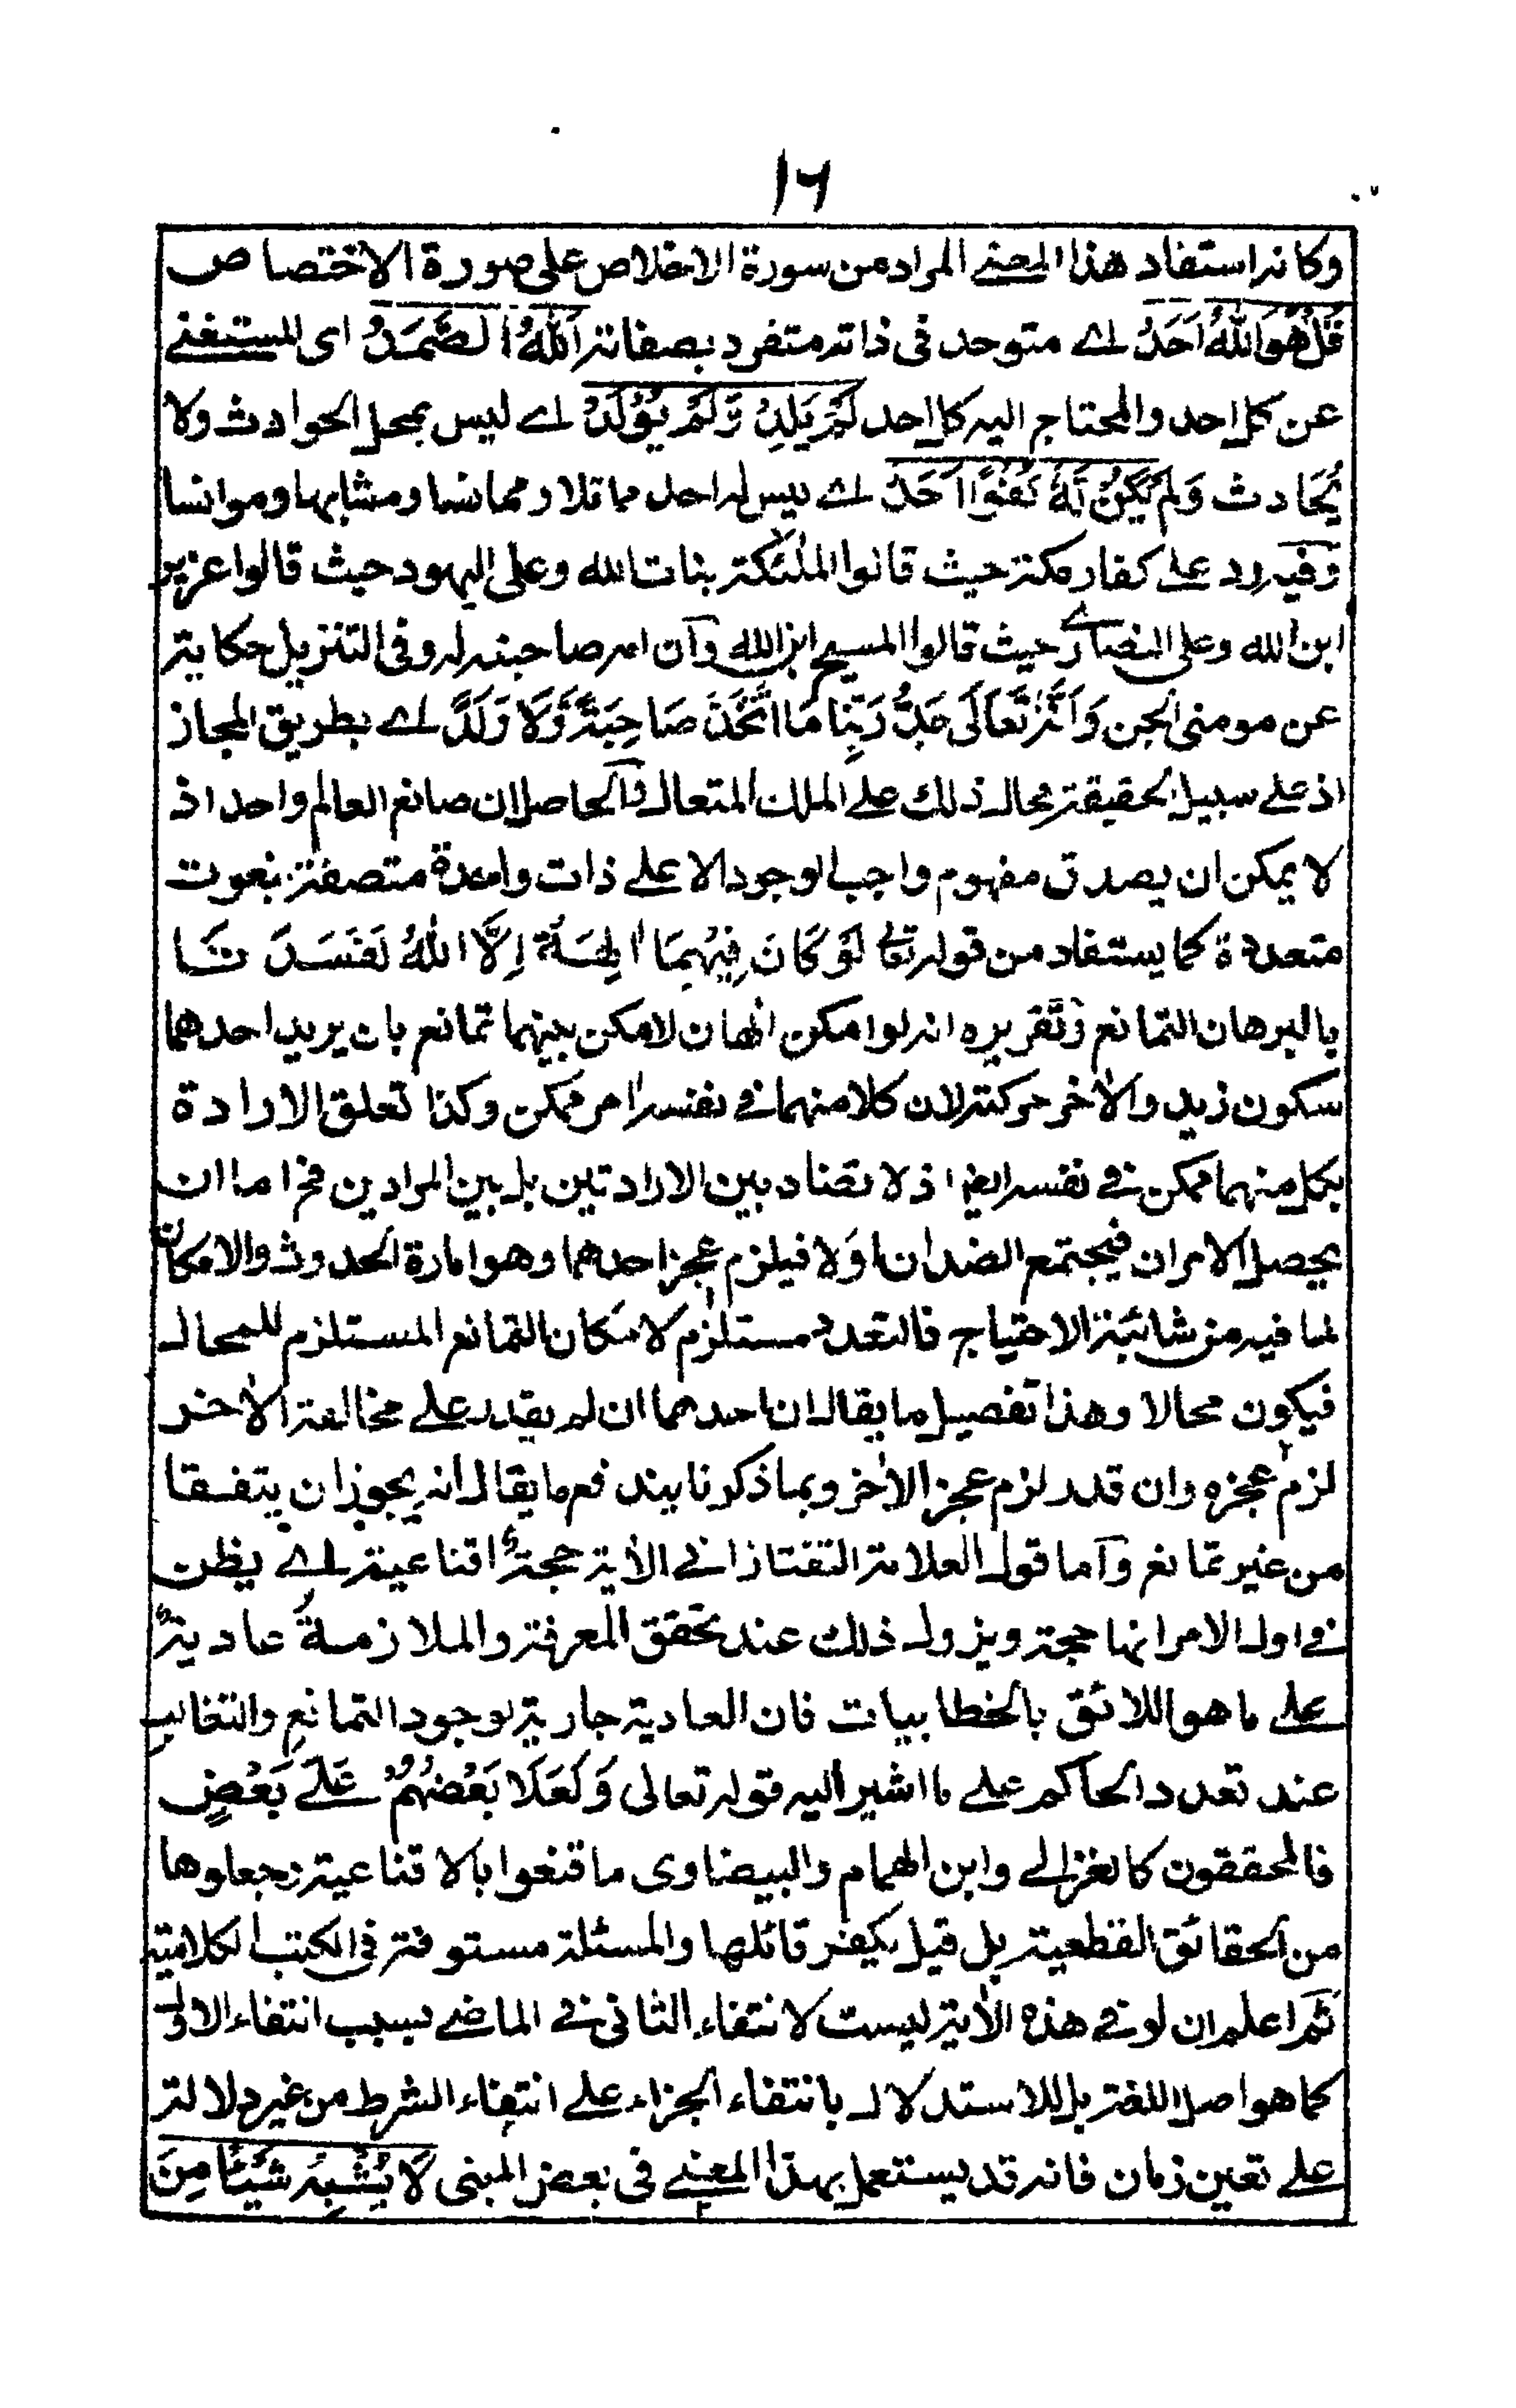 ١٦
وكانه استفاد هذا المعنے المراد من سورة الاخلاص على صورة الاختصاص
قُلْ هُوَ اللّٰهُ اَحَدٌ اے متوحد فى ذاته متفرد بصفاته اَللّٰهُ الصَّمَدُ اى المستغنے
عن كل احد والمحتاج اليه كل احد لَمْ يَلِدْ وَلَمْ يُوْلَدْ اے ليس بمحل الحوادث ولا
بُحَادث وَلَمْ يَكُنْ لَّهٗ كُفُوًا اَحَدٌ اے ليس له احد مماثلا ومجانسا ومشابها وموانسا
وفيه رد علے كفار مكة حيث قالوا الملٰئكة بنات الله وعلى اليهود حيث قالوا عزير
ابن الله وعلى النصارے حيث قالوا المسيح ابن الله وان امه صاحبته له وفى التنزيل حكاية
عن مومنى الجن وَاَنَّهٗ تَعَالٰى جَدُّ رَبِّنَا مَا اتَّخَذَ صَاحِبَةً وَّلَا وَلَدًا اے بطريق المجاز
اذ علے سبيل الحقيقة محال ذلك علے الملك المتعال والحاصل ان صانع العالم واحد اذ
لا يمكن ان يصدق مفهوم واجب الوجود الا علے ذات واحدة متصفة بنعوت
متعددة كما يستفاد من قوله تعالٰى لَوْ كَانَ فِيْهِمَا اٰلِهَةٌ اِلَّا اللّٰهُ لَفَسَدَتَا
بالبرهان التمانع وتقريره انه لو امكن الٰهان لامكن بينهما تمانع بان يريد احدهما
سكون زيد والاٰخر حركته لان كلا منهما فے نفسه امر ممكن وكذا تعلق الارادة
بكل منهما ممكن فے نفسه ايضا اذ لا تضاد بين الارادتين بل بين المرادين فح اما ان
يحصل الامران فيجتمع الضدان اوَلا فيلزم عجز احدهما وهو امارة الحدوث والامكان
لما فيه من شائبة الاحتياج فالتعدد مستلزم لامكان التمانع المستلزم للمحال
فيكون محالا وهذا تفصيل ما يقال ان احدهما ان لم يقدر علے مخالفة الاٰخر
لزم عجزه وان قدر لزم عجز الاٰخر وبما ذكرنا يندفع ما يقال انه يجوز ان يتفقا
من غير تمانع واما قول العلامة التفتازانے الاٰية حجة اقناعية اے يظن
فے اول الامر انها حجة ويزول ذلك عند تحقق المعرفة والملازمة عادية
علے ما هو اللائق بالخطابيات فان العادية جارية لوجود التمانع والتغالب
عند تعدد الحاكم علے ما اشير اليه قوله تعالى وَلَعَلَا بَعْضُهُمْ عَلٰے بَعْضٍ
فالمحققون كالغزالے وابن الهمام والبيضاوى ما قنعوا بالاقناعية وجعلوها
من الحقائق القطعية بل قيل يكفر قائلها والمسئلة مستوفة فى الكتب الكلامية
ثم اعلم ان لو فے هذه الاٰية ليست لانتفاء الثانى فے الماضے بسبب انتفاء الاول
كما هو اصل اللغة بل للاستدلال بانتفاء الجزاء علے انتفاء الشرط من غير دلالة
علے تعين زمان فانه قد يستعمل بهذا المعنے فى بعض المبنى لَا يُشْبِهُ شَيْئًا مِنَ